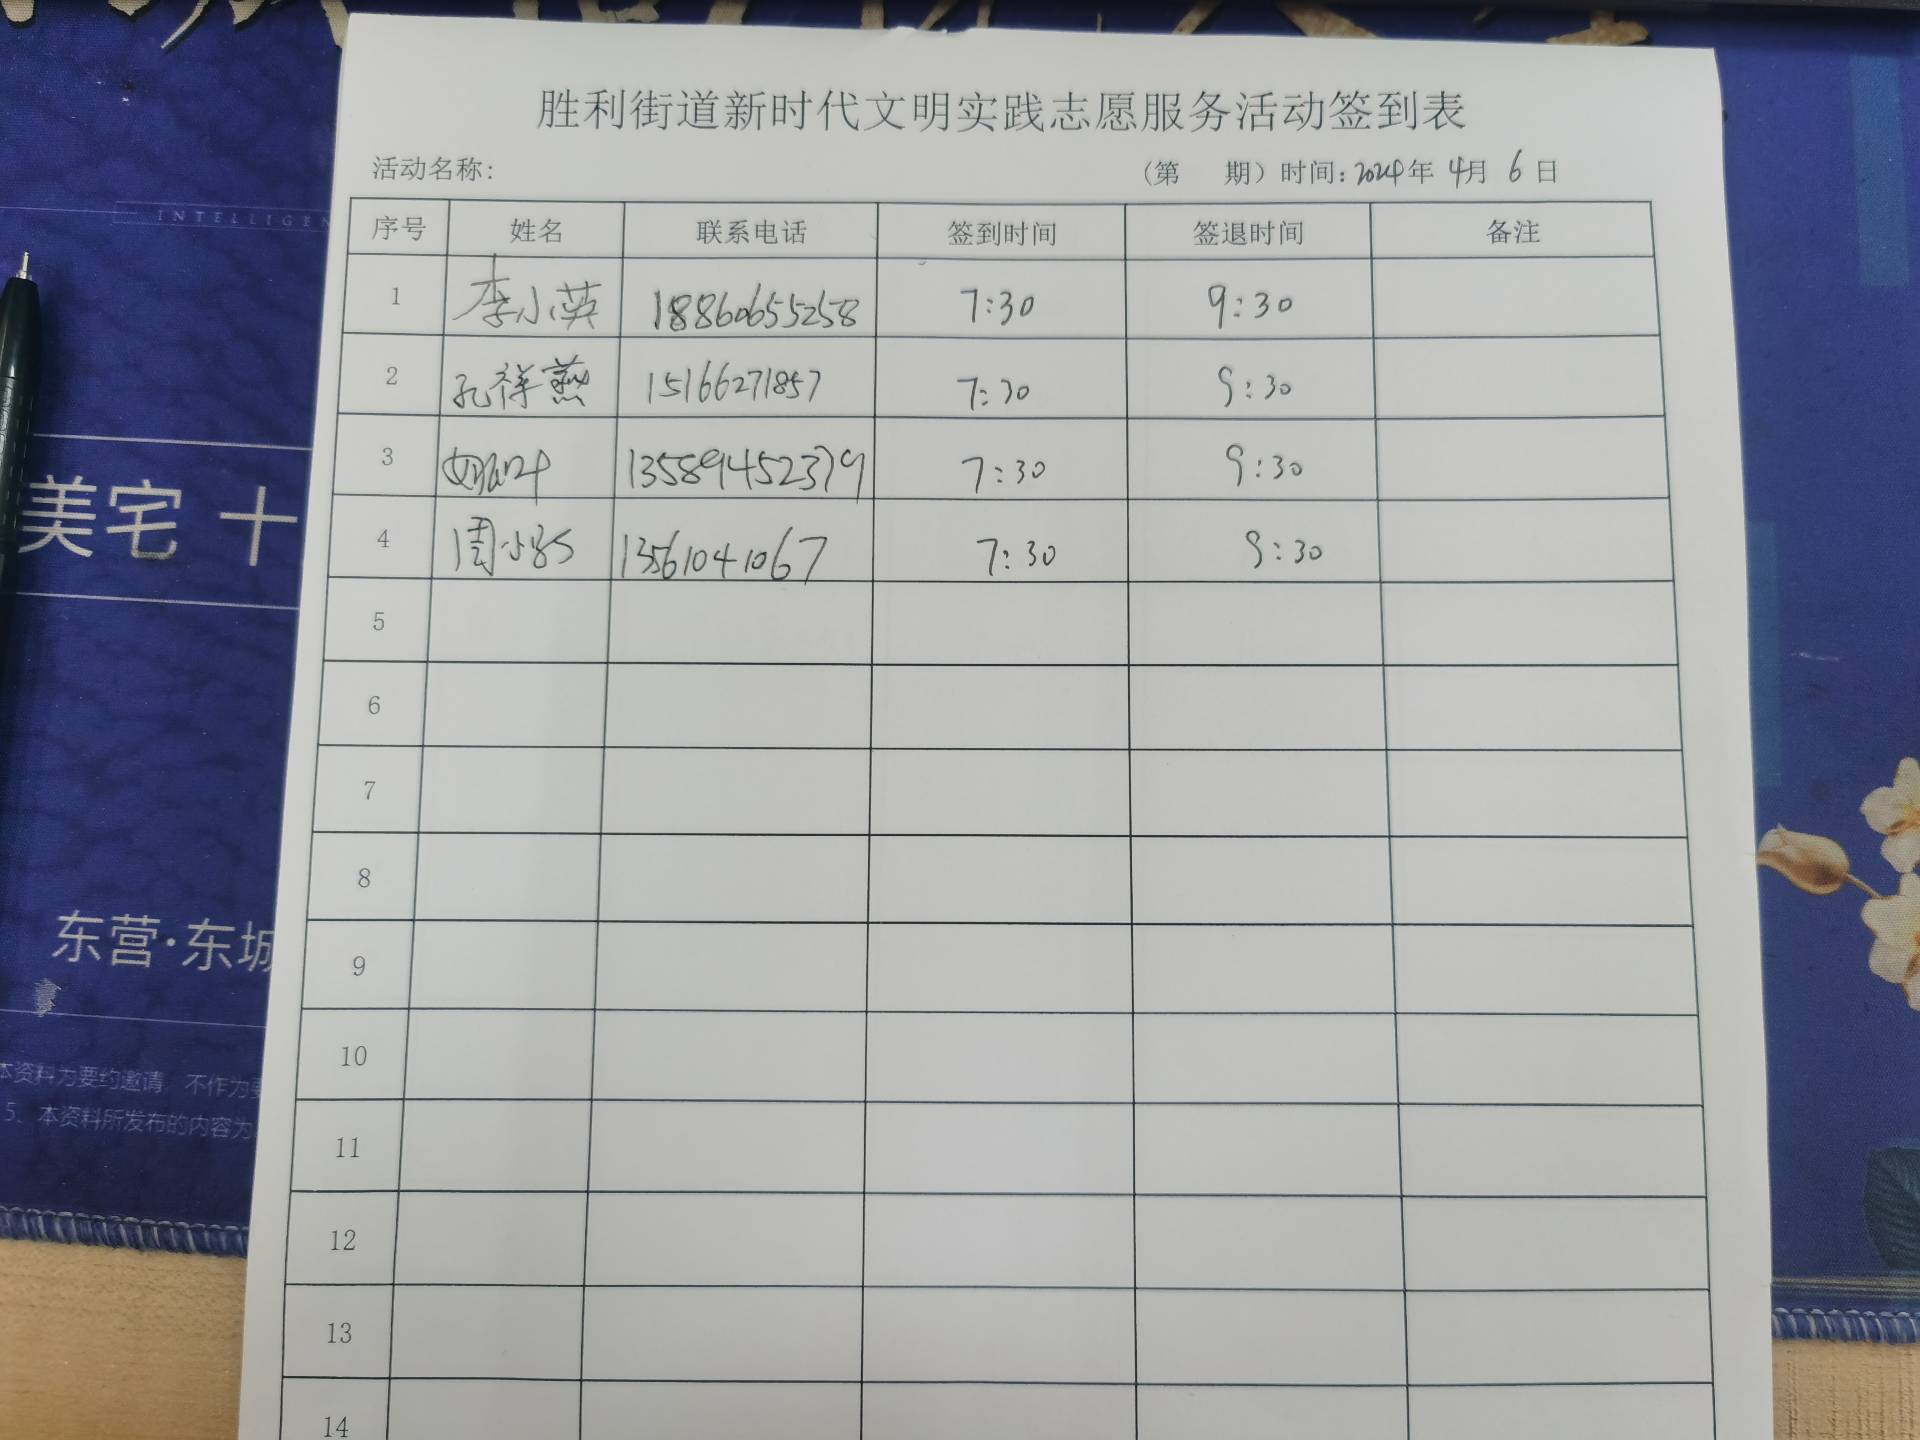 胜利街道新时代文明实践志愿服务活动签到表
活动名称: (第 期) 时间: 2024年 4月 6日
序号 姓名 联系电话 签到时间 签退时间 备注
1 李小英 18860655258 7:30 9:30
2 孔祥燕 15166271857 7:30 9:30
3 13589452379 7:30 9:30
4 周小 13561041067 7:30 9:30
5
6
7
8
9
10
11
12
13
14
INTELLIGEN
美宅 十
东营·东城
本资料为要约邀请,不作为要
5、本资料所发布的内容为